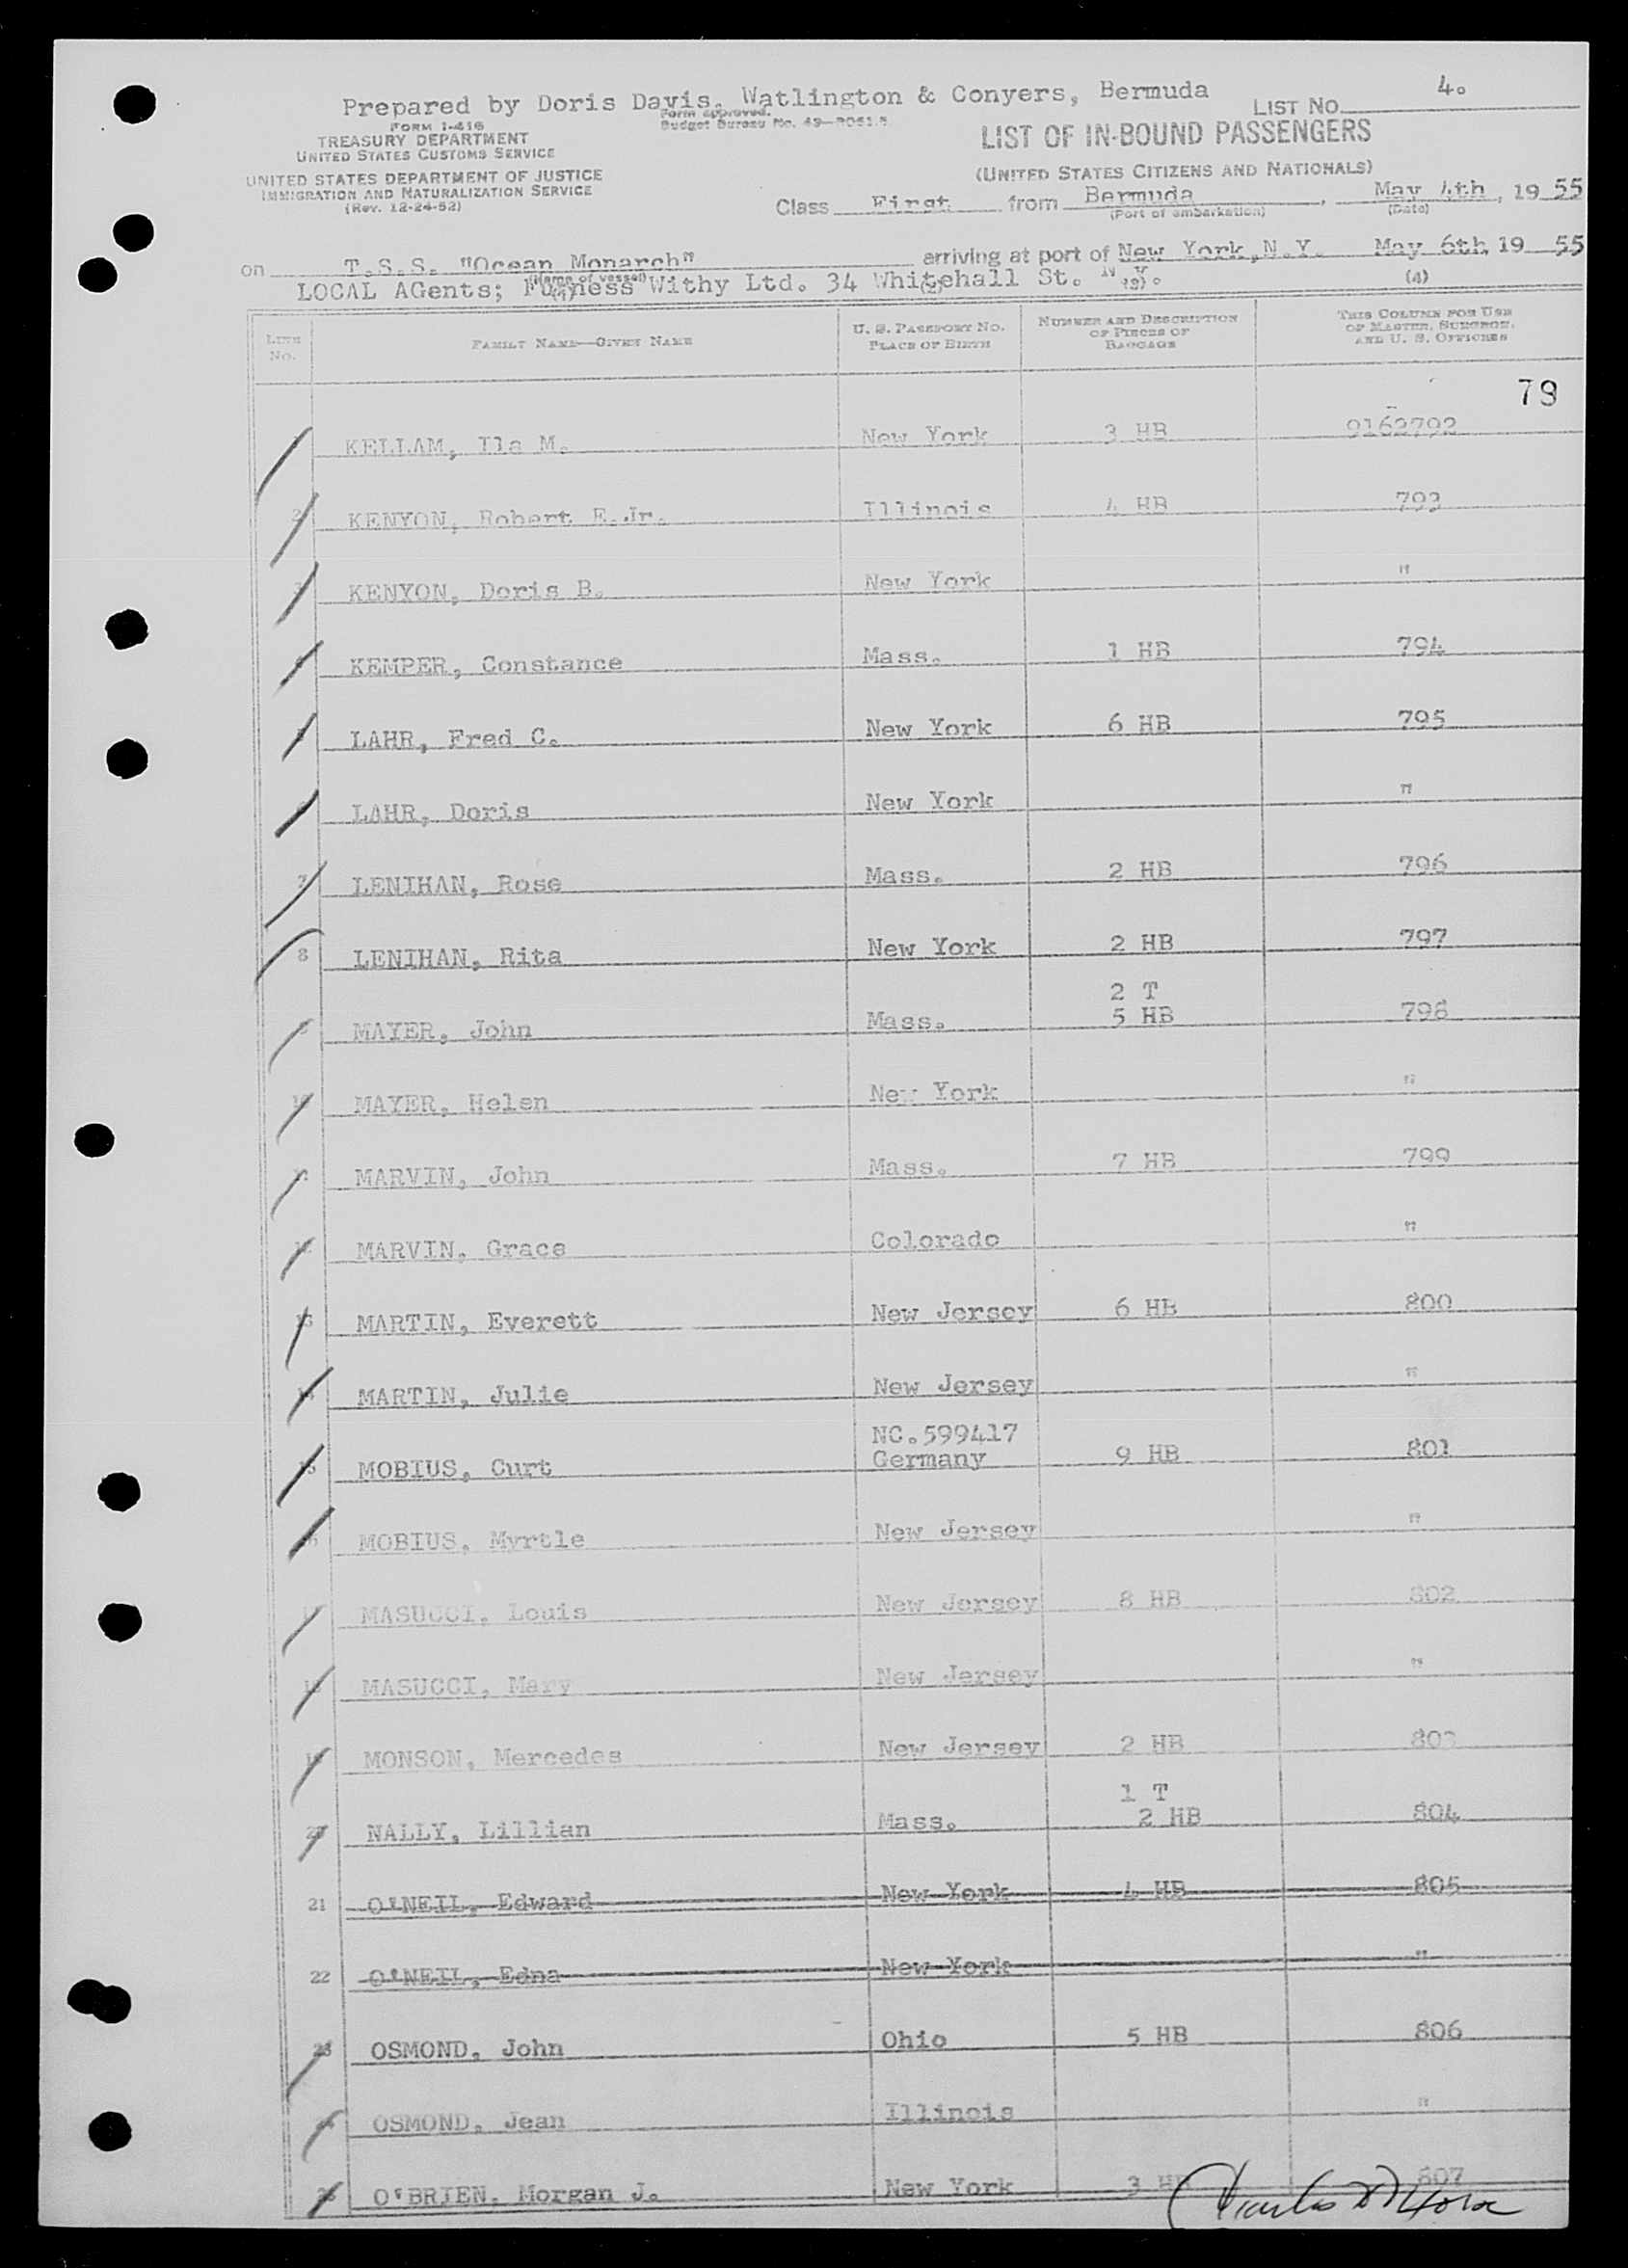 Prepared by Doris Davis, Watlington & Conyers, Bermuda
LIST NO. 4.
FORM I-418
Form approved.
Budget Bureau No.
TREASURY DEPARTMENT
UNITED STATES CUSTOMS SERVICE
LIST OF IN-BOUND PASSENGERS
(UNITED STATES CITIZENS AND NATIONALS)
UNITED STATES DEPARTMENT OF JUSTICE
IMMIGRATION AND NATURALIZATION SERVICE
(Rev. 12-24-52)
Class First from Bermuda, May 4th, 1955
(Port of embarkation) (Date)
on T.S.S. "Ocean Monarch" arriving at port of New York, N.Y. May 6th, 1955
(Name of vessel)
LOCAL AGents; Furness Withy Ltd. 34 Whitehall St. N.Y.
(1) (2) (3) (4)
LINE No. FAMILY NAME—GIVEN NAME U. S. PASSPORT NO. PLACE OF BIRTH NUMBER AND DESCRIPTION OF PIECES OF BAGGAGE THIS COLUMN FOR USE OF MASTER, SURGEON, AND U. S. OFFICERS
79
KELLAM, Ila M. New York 3 HB 9162792
2 KENYON, Robert E.Jr. Illinois 4 HB 793
3 KENYON, Doris B. New York "
4 KEMPER, Constance Mass. 1 HB 794
5 LAHR, Fred C. New York 6 HB 795
LAHR, Doris New York "
7 LENIHAN, Rose Mass. 2 HB 796
8 LENIHAN, Rita New York 2 HB 797
2 T
9 MAYER, John Mass. 5 HB 798
10 MAYER, Helen New York "
MARVIN, John Mass. 7 HB 799
12 MARVIN, Grace Colorado "
13 MARTIN, Everett New Jersey 6 HB 800
14 MARTIN, Julie New Jersey "
NC.599417
15 MOBIUS, Curt Germany 9 HB 801
16 MOBIUS, Myrtle New Jersey "
17 MASUCCI, Louis New Jersey 8 HB 802
18 MASUCCI, Mary New Jersey "
19 MONSON, Mercedes New Jersey 2 HB 803
1 T
20 NALLY, Lillian Mass. 2 HB 804
21 O'NEIL, Edward New York 4 HB 805
22 O'NEIL, Edna New York "
23 OSMOND, John Ohio 5 HB 806
24 OSMOND, Jean Illinois "
25 O'BRIEN, Morgan J. New York 3 HB 807